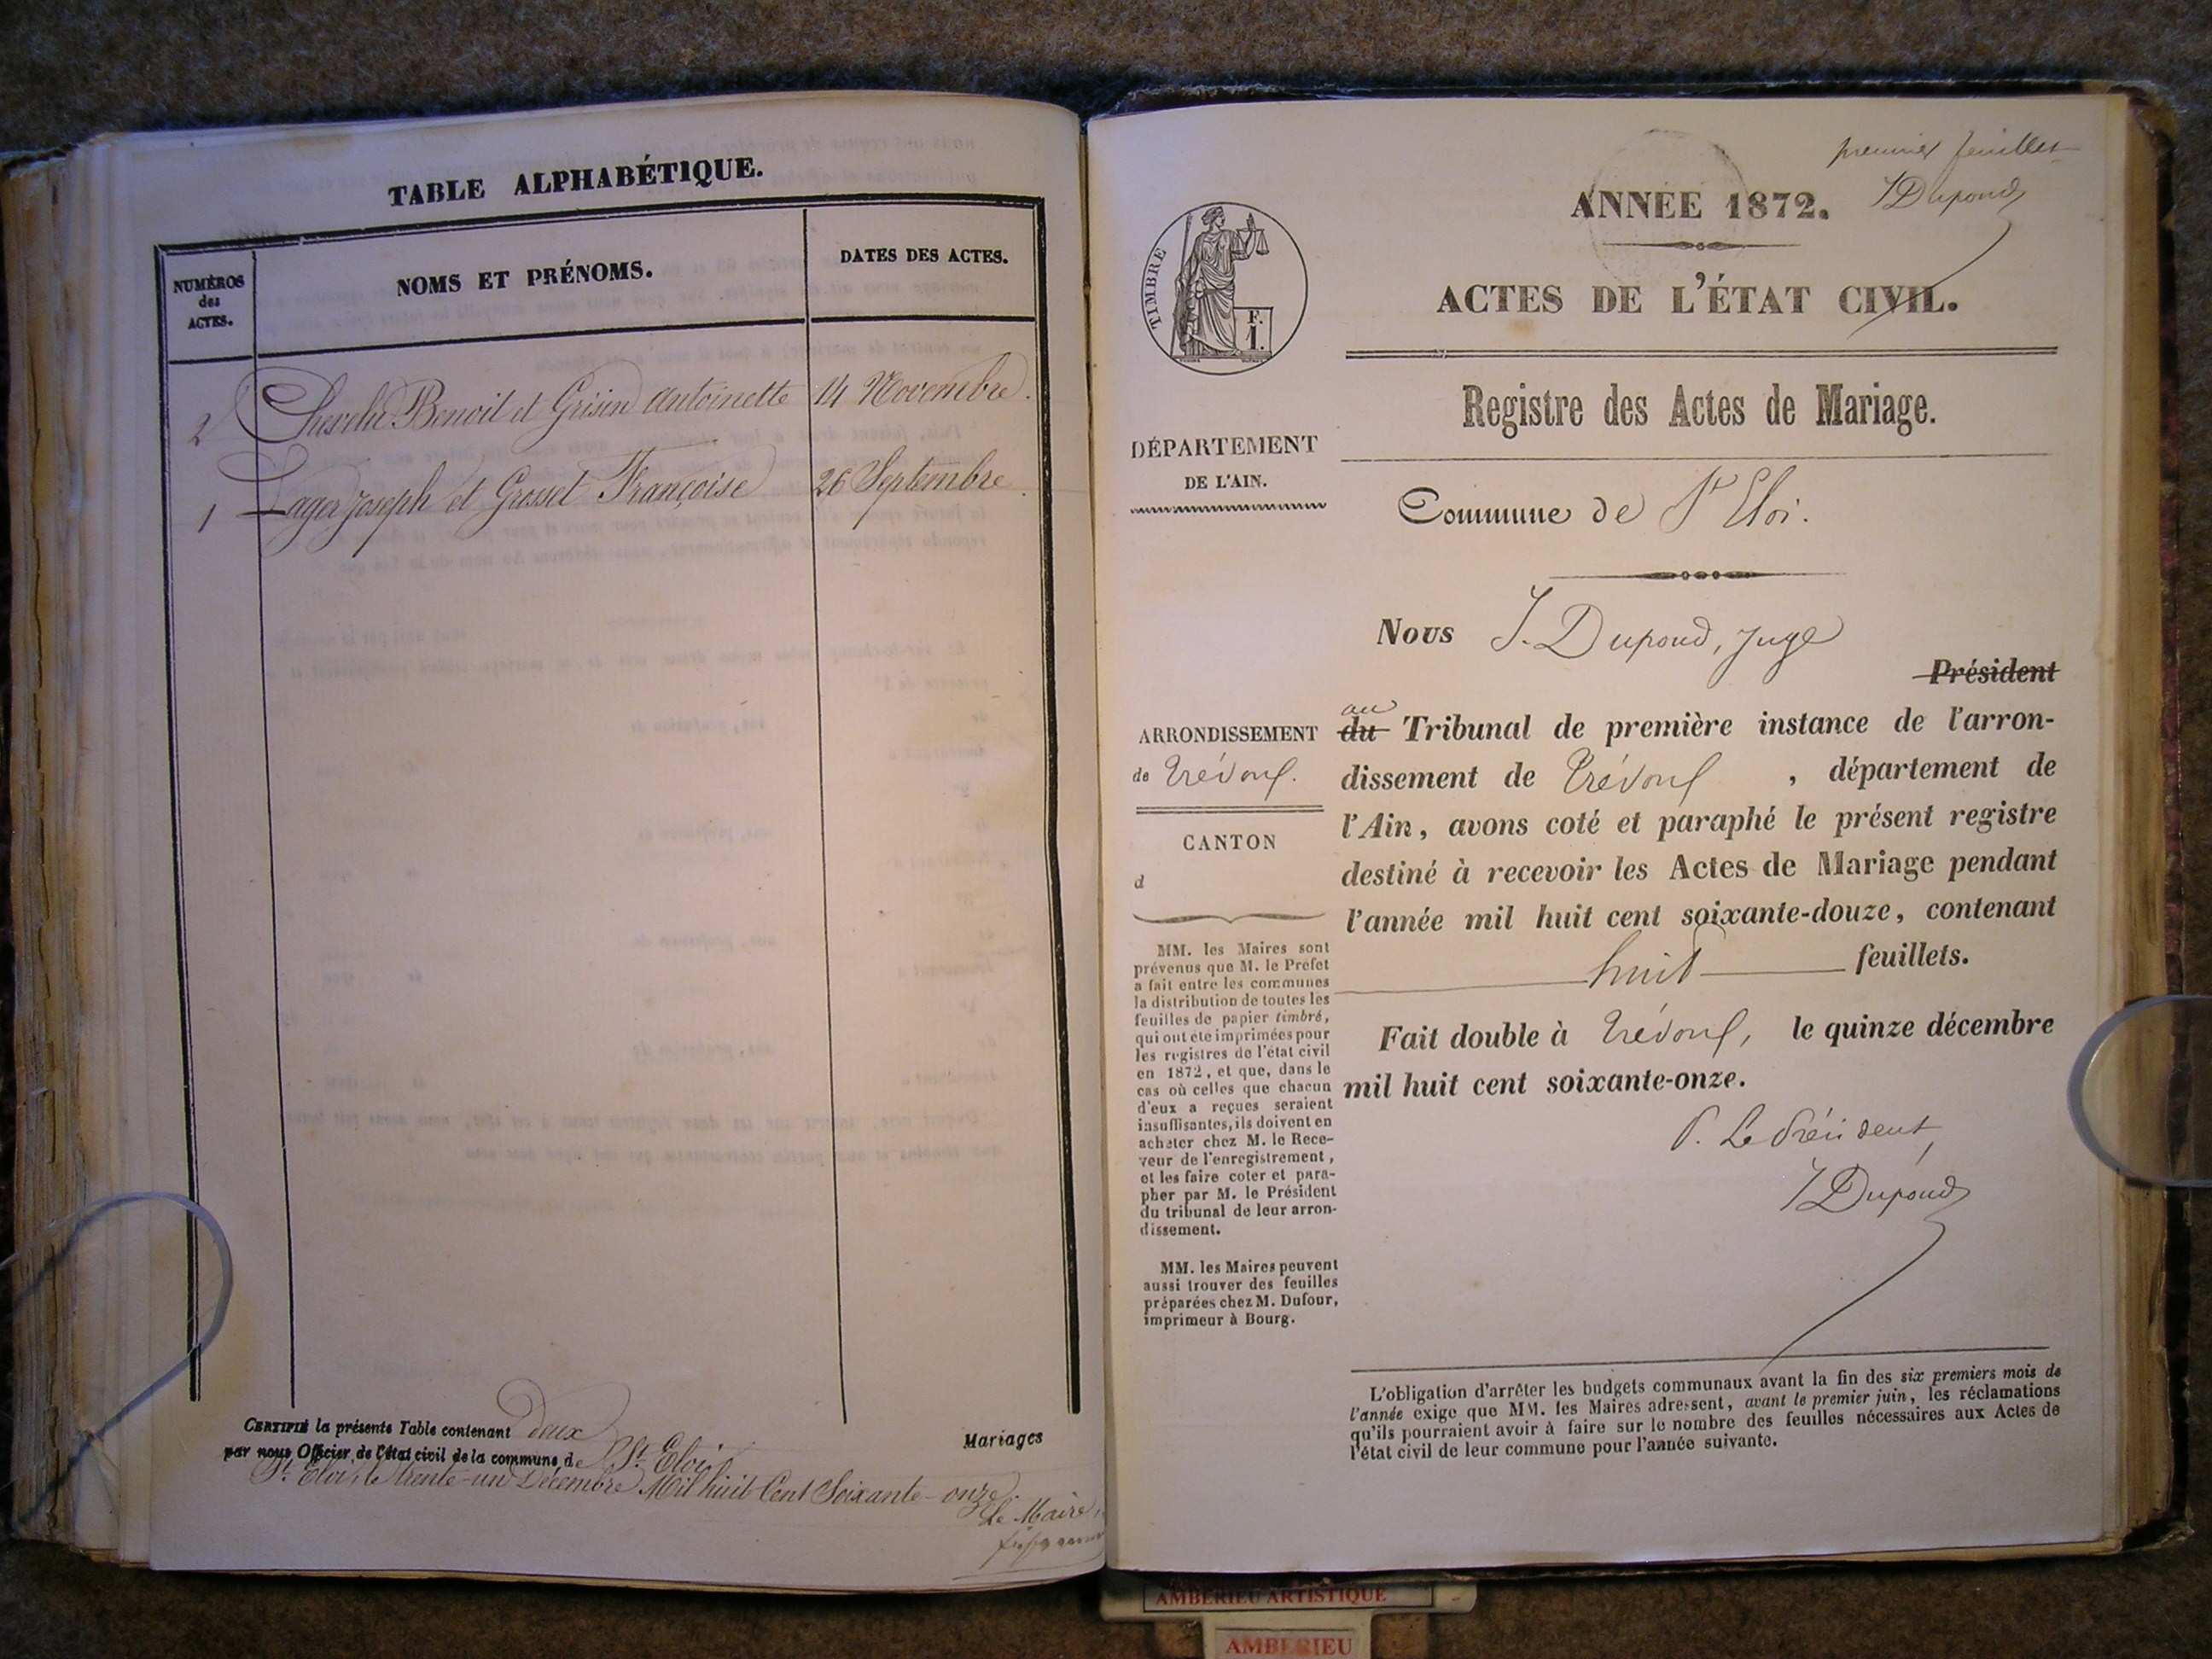 TABLE ALPHABÉTIQUE.
NUMÉROS
des
ACTES.
NOMS ET PRÉNOMS.
DATES DES ACTES.
2 Chevelu Benoit et Grisin Antoinette 14 Novembre.
1 Lager Joseph et Grosset Françoise 26 Septembre.
CERTIFIÉ la présente Table contenant deux Mariages
par nous Officier de l'état civil de la commune de St Eloi
St Eloi, le trente-un Décembre Mil huit Cent Soixante-onze.
Le Maire,
premier feuillet
JDupond
ANNÉE 1872.
ACTES DE L'ÉTAT CIVIL.
TIMBRE
F.
1.
Registre des Actes de Mariage.
DÉPARTEMENT
DE L'AIN.
Commune de St Eloi.
Nous J. Dupond, Juge
Président
au
ARRONDISSEMENT
de Trévoux.
CANTON
d
du Tribunal de première instance de l'arron-
dissement de Trévoux, département de
l'Ain, avons coté et paraphé le présent registre
destiné à recevoir les Actes de Mariage pendant
l'année mil huit cent soixante-douze, contenant
huit feuillets.
Fait double à Trévoux, le quinze décembre
mil huit cent soixante-onze.
P. Le Président,
JDupond
MM. les Maires sont
prévenus que M. le Préfet
a fait entre les communes
la distribution de toutes les
feuilles de papier timbré,
qui ont été imprimées pour
les registres de l'état civil
en 1872, et que, dans le
cas où celles que chacun
d'eux a reçues seraient
insuffisantes, ils doivent en
acheter chez M. le Rece-
veur de l'enregistrement,
et les faire coter et para-
pher par M. le Président
du tribunal de leur arron-
dissement.
MM. les Maires peuvent
aussi trouver des feuilles
préparées chez M. Dufour,
imprimeur à Bourg.
L'obligation d'arrêter les budgets communaux avant la fin des six premiers mois de
l'année exige que MM. les Maires adressent, avant le premier juin, les réclamations
qu'ils pourraient avoir à faire sur le nombre des feuilles nécessaires aux Actes de
l'état civil de leur commune pour l'année suivante.
AMBERIEU ARTISTIQUE
AMBERIEU